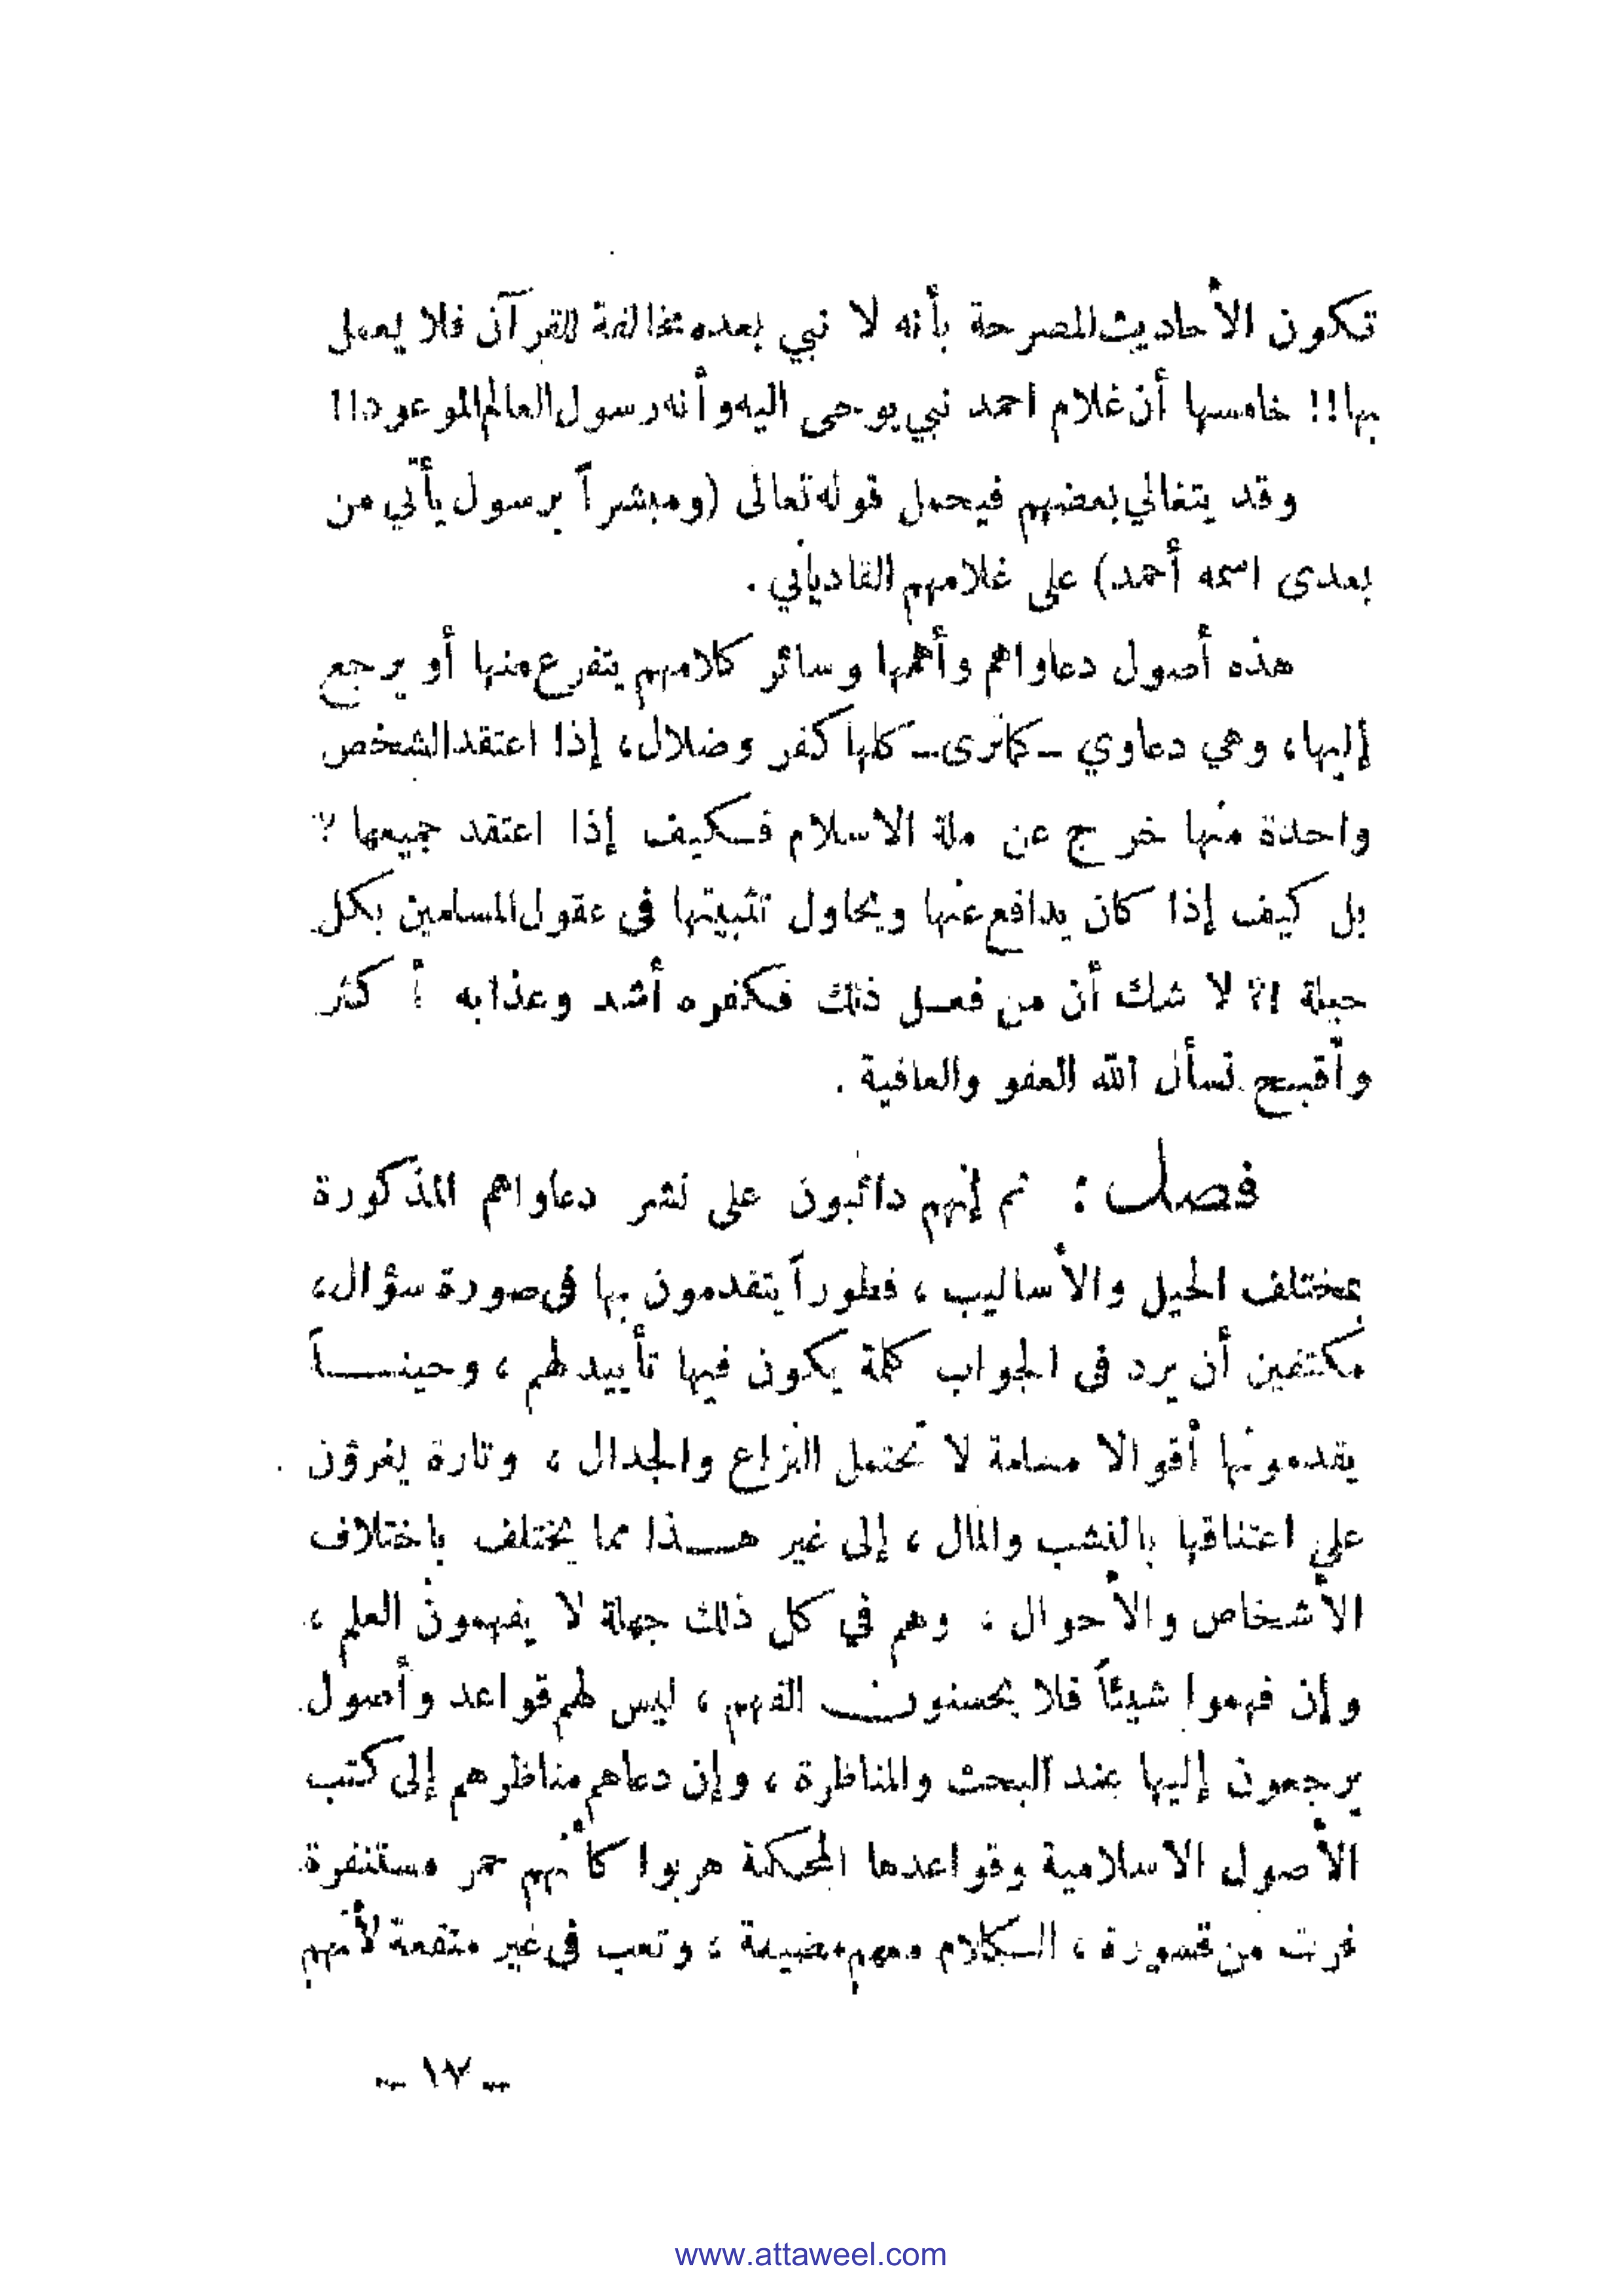 تكون الأحاديث المصرحة بأنه لا نبي بعده مخالفة للقرآن فلا يعمل
بها!! خامسها أن غلام احمد نبي يوحى اليه وأنه رسول العالم الموعود!!
وقد يتغالي بعضهم فيحمل قوله تعالى (ومبشراً برسول يأتي من
بعدى اسمه أحمد) على غلامهم القادياني .
هذه أصول دعاواهم وأهمها وسائر كلامهم يتفرع منها أو يرجع
إليها، وهي دعاوي – كما ترى – كلها كفر وضلال، إذا اعتقد الشخص
واحدة منها خرج عن ملة الاسلام فكيف إذا اعتقد جميعها ؟
بل كيف إذا كان يدافع عنها ويحاول تثبيتها فى عقول المسلمين بكل
حيلة ؟! لا شك أن من فعل ذلك فكفره أشد وعذابه أكثر
وأقبح نسأل الله العفو والعافية .
فصل : ثم إنهم دائبون على نشر دعاواهم المذكورة
بمختلف الحيل والأساليب ، فطوراً يتقدمون بها فى صورة سؤال،
مكتفين أن يرد فى الجواب كلمة يكون فيها تأييد لهم ، وحينــاً
يقدمونها أقوالا مسلمة لا تحتمل النزاع والجدال ، وتارة يغرؤن
على اعتناقها بالنشب والمال ، إلى غير هــذا مما يختلف باختلاف
الأشخاص والأحوال ، وهم في كل ذلك جهلة لا يفهمون العلم ،
وإن فهموا شيئاً فلا يحسنون الفهم ، ليس لهم قواعد وأصول
يرجعون إليها عند البحث والمناظرة ، وإن دعاهم مناظرهم إلى كتب
الأصول الاسلامية وقواعدها المحكمة هربوا كأنهم حمر مستنفرة
فرت من قسورة ، الكلام معهم مضيعة ، وتعب فى غير منفعة لأنهم
– ١٧ –
www.attaweel.com